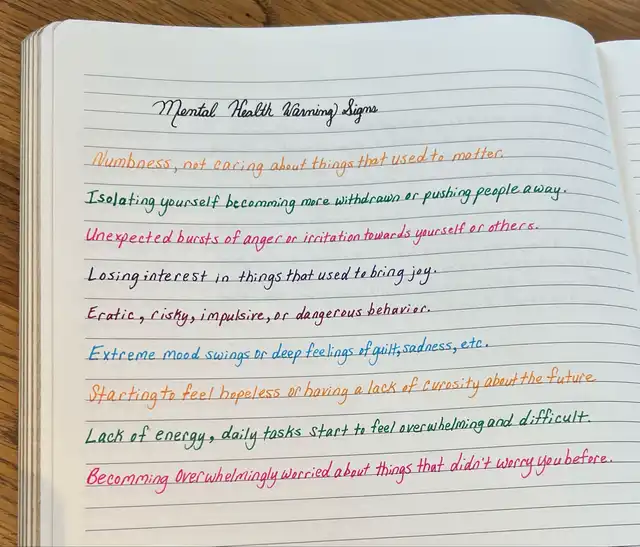 Mental Health Warning Signs
Numbness, not caring about things that used to matter.
Isolating yourself becomming more withdrawn or pushing people away.
Unexpected bursts of anger or irritation towards yourself or others.
Losing interest in things that used to bring joy.
Eratic, risky, impulsive, or dangerous behavior.
Extreme mood swings or deep feelings of guilt, sadness, etc.
Starting to feel hopeless or having a lack of curosity about the future
Lack of energy, daily tasks start to feel overwhelming and difficult.
Becomming overwhelmingly worried about things that didn't worry you before.